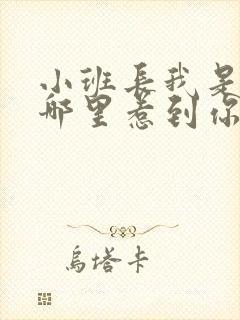 小班長我是
哪里惹到你
烏塔卡